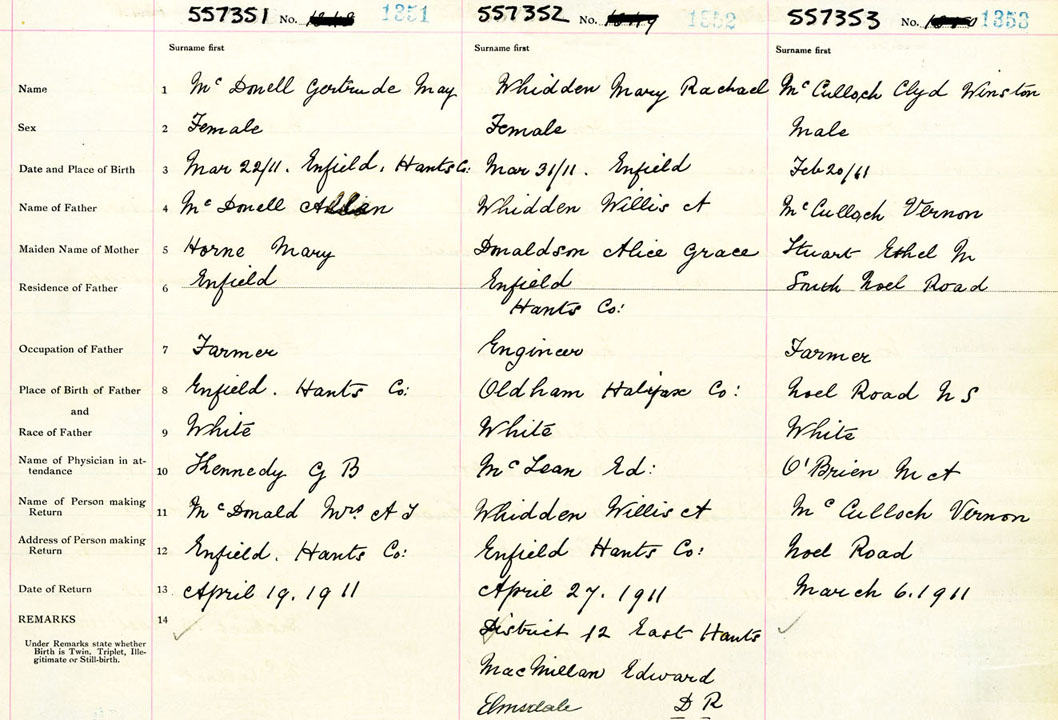 557351 No. 1351 557352 No. 1352 557353 No. 1353
Surname first Surname first Surname first
Name 1 Mc Donell Gertrude May Whidden Mary Rachael Mc Culloch Clyd Winston
Sex 2 Female Female Male
Date and Place of Birth 3 Mar 22/11. Enfield. Hants Co: Mar 31/11. Enfield Feb 20/11
Name of Father 4 Mc Donell Whidden Willis A Mc Culloch Vernon
Maiden Name of Mother 5 Horne Mary Donaldson Alice Grace Stuart Ethel M
Residence of Father 6 Enfield Enfield South Noel Road
Hants Co:
Occupation of Father 7 Farmer Engineer Farmer
Place of Birth of Father 8 Enfield. Hants Co: Oldham Halifax Co: Noel Road N S
and
Race of Father 9 White White White
Name of Physician in at-
tendance 10 Kennedy G B Mc Lean Ed: O'Brien M A
Name of Person making
Return 11 Mc Donald Mrs. A J Whidden Willis A Mc Culloch Vernon
Address of Person making
Return 12 Enfield. Hants Co: Enfield Hants Co: Noel Road
Date of Return 13 April 19. 1911 April 27. 1911 March 6. 1911
REMARKS 14
District 12 East Hants
Under Remarks state whether
Birth is Twin, Triplet, Ille-
gitimate or Still-birth.
MacMillan Edward
Elmsdale D R